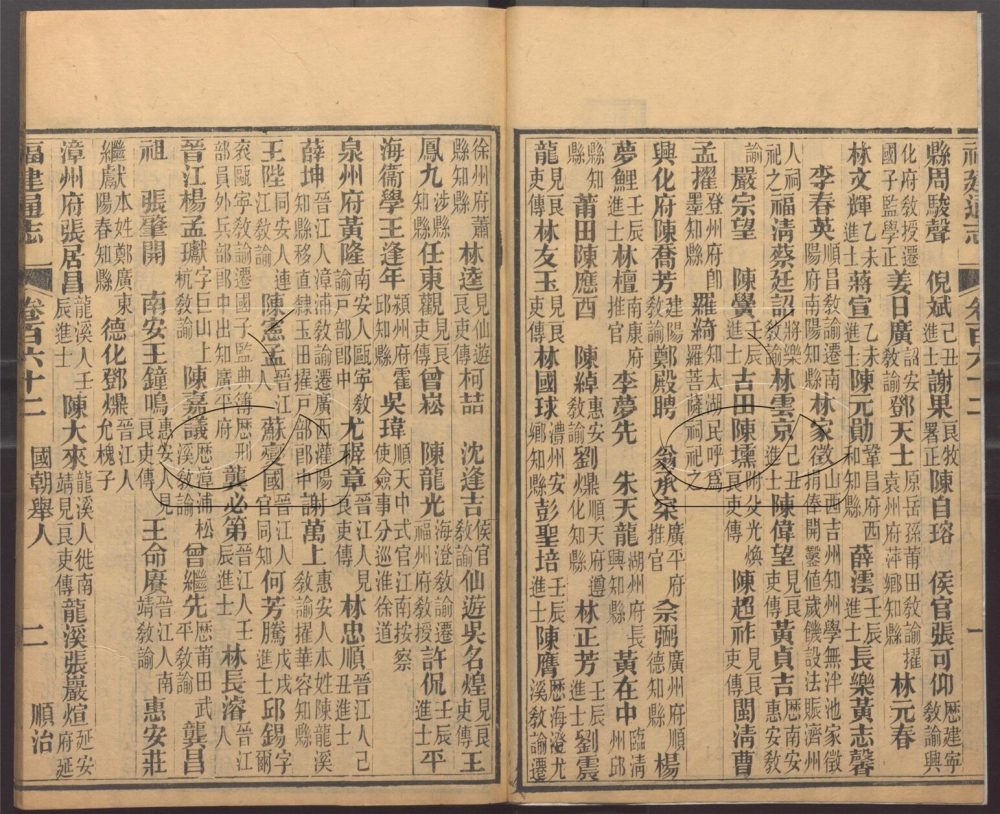 福建通志 卷百六十二 一
縣周駿聲 倪斌己丑進士謝果見良牧署正陳自瑢 侯官張可仰歷建寧教諭興
化府教授遷國子監學正姜日廣詔安教諭鄧天士原岳孫莆田教諭擢袁州府萍鄉知縣林元春
林文輝乙未進士蔣宣乙未進士陳元勛鞏昌府西和知縣薛澐壬辰進士長樂黃志馨
李春英順昌教諭遷南陽府南陽知縣林家徵山西吉州知州學無泮池家徵捐俸開鑿值歲饑設法賑濟州
人祠祀之福清蔡廷詔將樂教諭林雲京己丑進士陳偉望見良吏傳黃貞吉歷南安惠安教
諭嚴宗望 陳黌壬辰進士古田陳壎附父光煥良吏傳陳超祚見良吏傳閩清曹
孟擢登州府即墨知縣羅綺知太湖民呼為羅菩薩祠祀之
興化府陳喬芳建陽教諭鄭殿聘 翁承寀廣平府推官佘弼廣州府順德知縣楊
夢鯉壬辰進士林檀南康府推官李夢先 朱天龍湖州府長興知縣黃在中臨清州邱
縣知縣莆田陳應酉 陳綽惠安教諭劉爍順天府遵化知縣林正芳壬辰進士劉震
龍見良吏傳林友玉見良吏傳林國球澧州安鄉知縣彭聖培壬辰進士陳膺歷海澄尤溪教諭遷
徐州府蕭縣知縣林逵見仙遊良吏傳柯喆 沈逢吉侯官教諭仙遊吳名煌見良吏傳王
鳳九涉縣知縣任東觀見良吏傳曾崧 陳龍光海澄教諭遷福州府教授許侃壬辰進士平
海衞學王逢年潁州府霍邱知縣吳瑋順天中式官江南按察使僉事分巡淮徐道
泉州府黃隆南安人甌寧教諭戶部郎中尤璧章晉江人見良吏傳林忠順晉江人己丑進士
薛坤晉江人漳浦教諭遷廣西灌陽知縣移直隸玉田擢戶部郎中謝萬上惠安人本姓陳龍溪教諭擢華容知縣
王陛同安人連江教諭陳憲孟晉江人蘇臺國晉江人官同知何芳騰戊戌進士邱錫字
袞甌寧教諭遷國子監典簿歷刑部員外兵部郎中出知廣平府龔必第晉江人壬辰進士林長濬晉江人
晉江楊孟瓛字巨山上杭教諭陳嘉議歷漳浦松溪教諭曾繼先歷莆田武平教諭龔昌
祖 張肇開 南安王鐘鳴惠安人見良吏傳王命賡晉江人南靖教諭惠安莊
繼獻本姓鄭廣東陽春知縣德化鄧爍晉江人允槐子
漳州府張居昌龍溪人壬辰進士陳大來龍溪人徙南靖見良吏傳龍溪張嚴煊延安府延
福建通志 卷百六十二 國朝舉人 二 順治